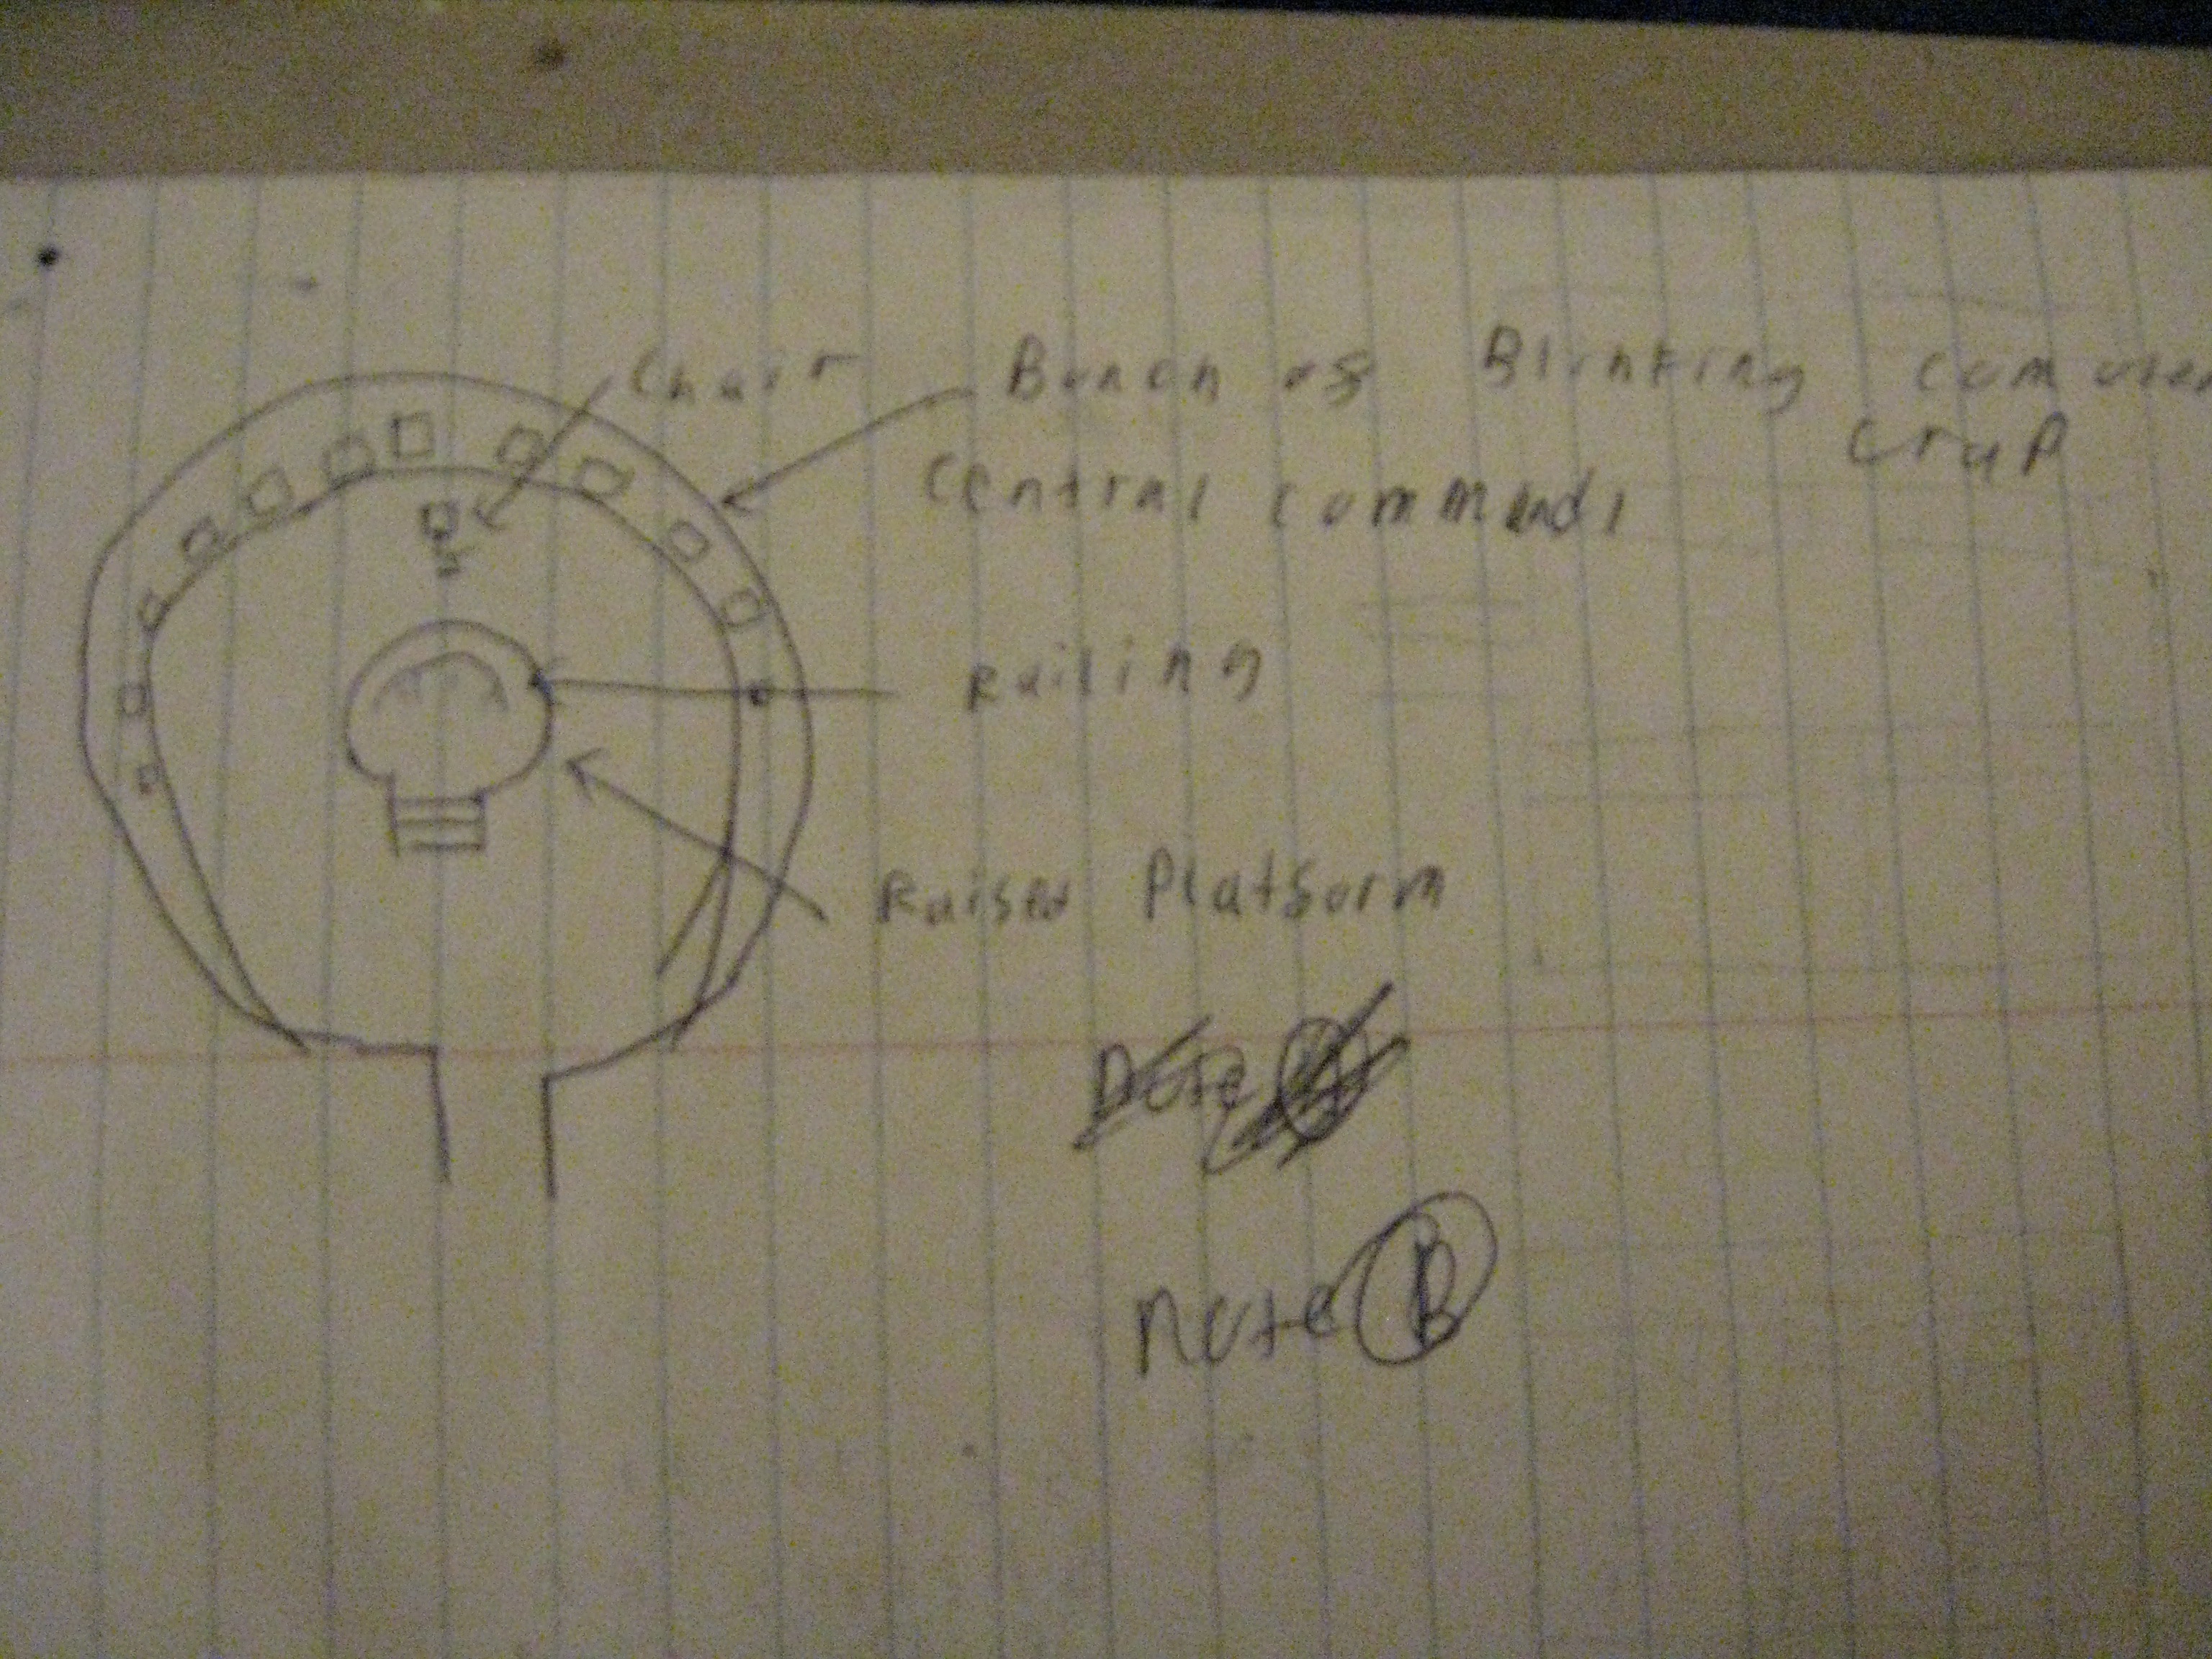 Chair Bunch of Blinking
crap
Central command
Railing
Raised Platform
Note
note B